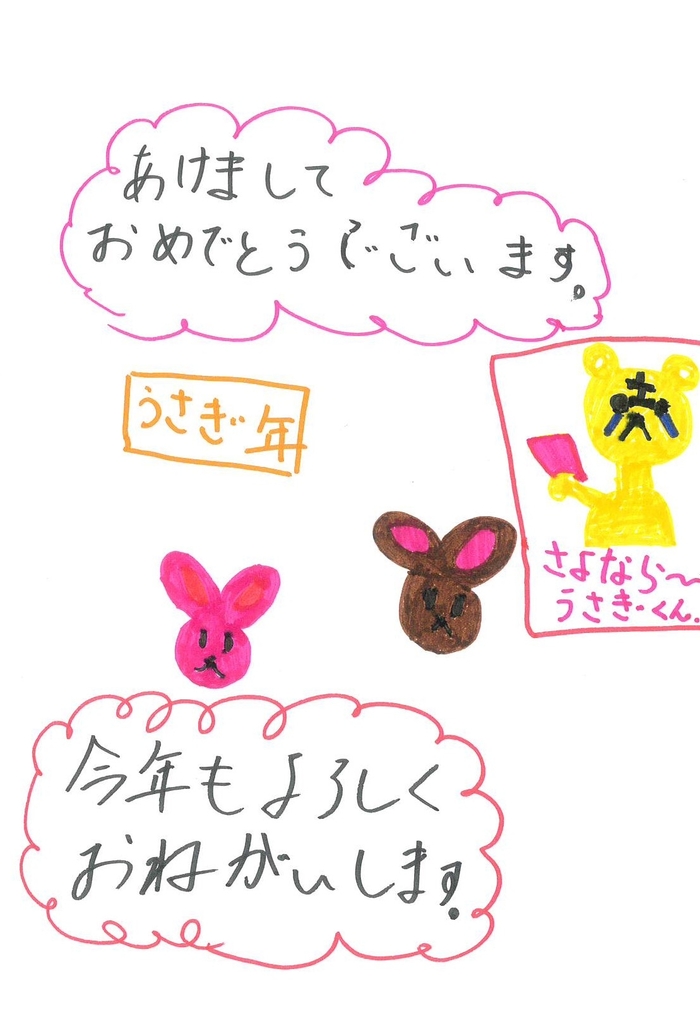 あけまして
おめでとうございます。
うさぎ年
さよなら〜
うさぎくん。
今年もよろしく
おねがいします。